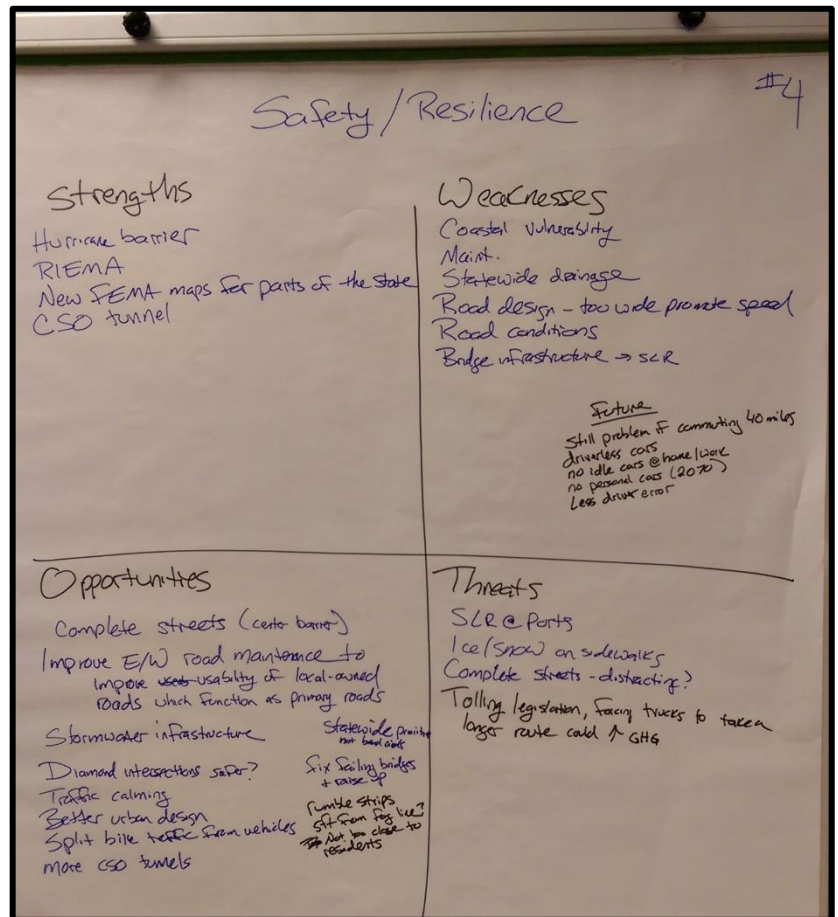 #4
Safety / Resilience
Strengths
Hurricane barrier
RIEMA
New FEMA maps for parts of the state
CSO tunnel
Weaknesses
Coastal Vulnerability
Maint.
Statewide drainage
Road design - too wide promote speed
Road conditions
Bridge infrastructure → SLR
Future
Still problem if commuting 40 miles
driverless cars
no idle cars @ home/work
no personal cars (2070)
Less driver error
Opportunities
Complete streets (center barrier)
Improve E/W road maintence to
improve usability of local-owned
roads which function as primary roads
Stormwater infrastructure
Diamond intersections safer?
Traffic calming
Better urban design
Split bike traffic from vehicles
more CSO tunnels
Statewide
not
fix failing bridges
+ raise up
rumble strips
5ft from fog line?
Not too close to
residents
Threats
SLR @ Ports
Ice/Snow on sidewalks
Complete streets - distracting?
Tolling legislation, forcing trucks to take a
longer route could ↑ GHG